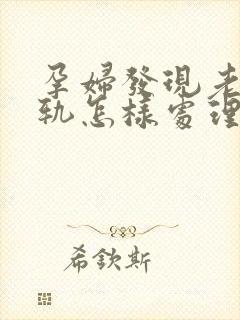 孕婦發現老
軌怎樣處理
希欽斯